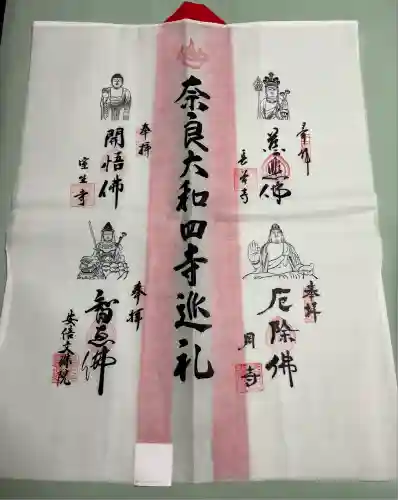 奈良大和四寺巡礼
奉拝
慈悲佛
長谷寺
奉拝
開悟佛
室生寺
奉拝
厄除佛
岡寺
奉拝
智恵佛
安倍文殊院